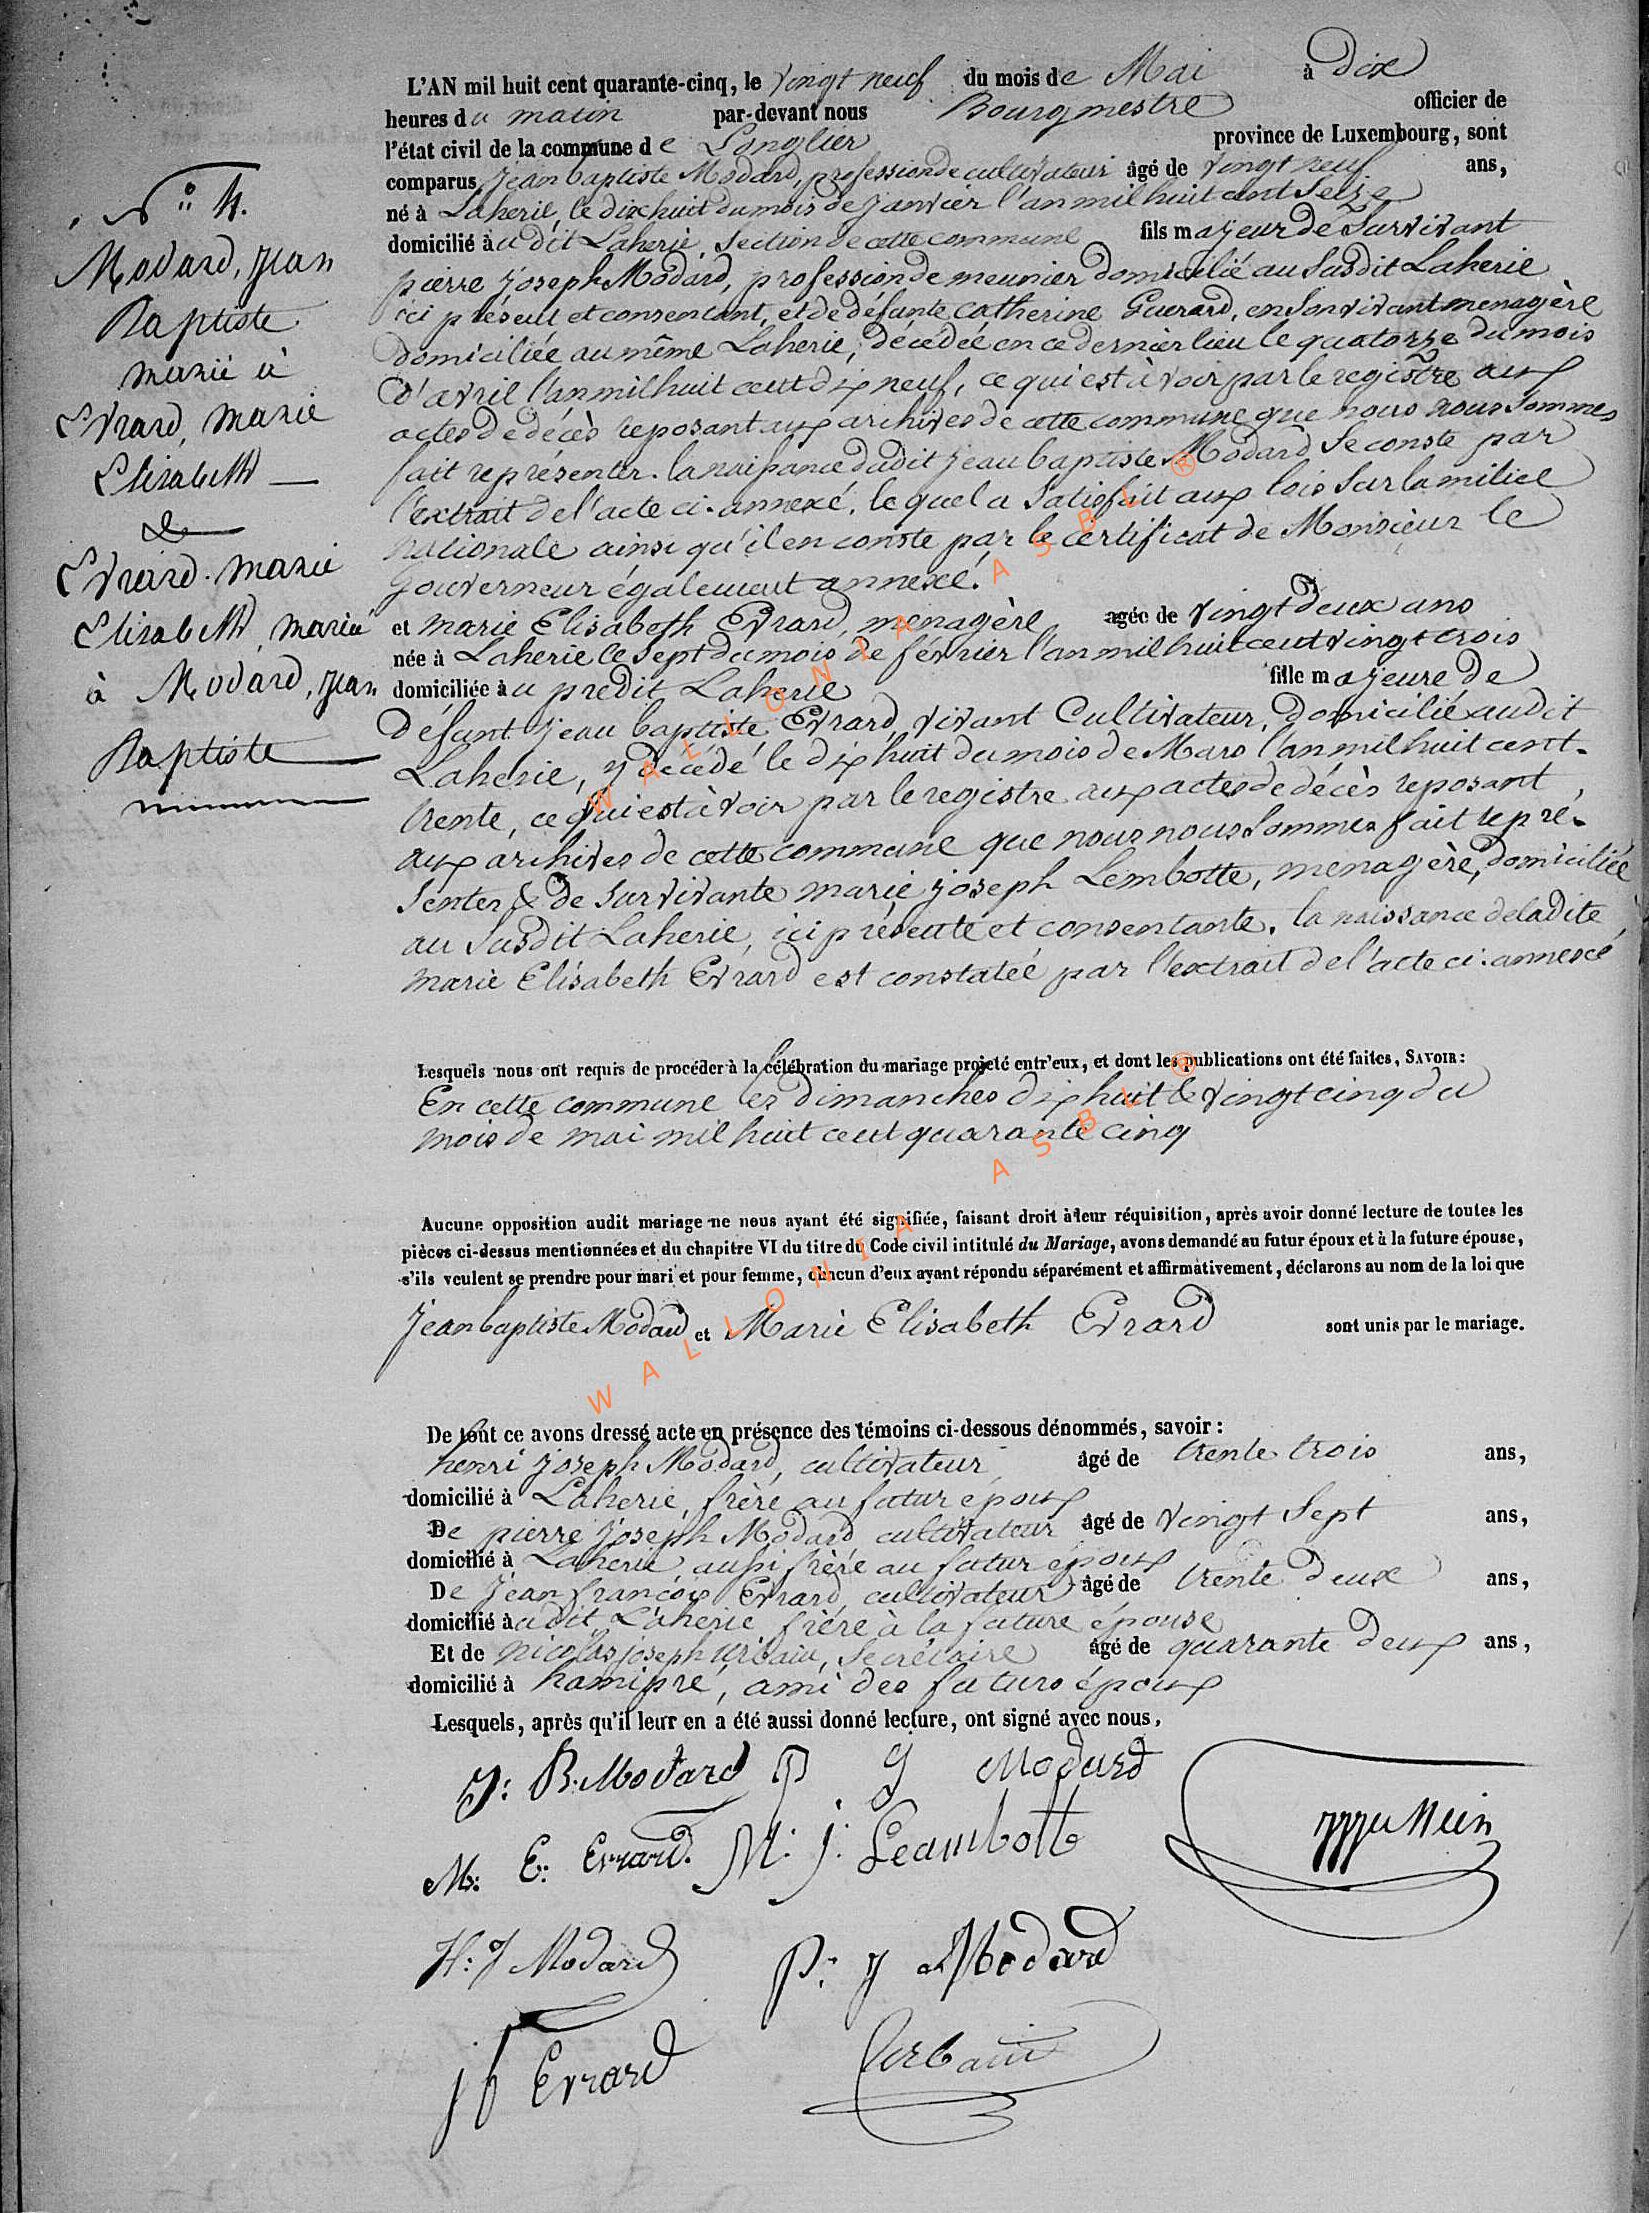 N° 4.
Modard, Jean
Baptiste
marié à
Evrard, Marie
Elisabeth —
&
Evrard. Marie
Elisabeth, mariée
à Modard, Jean
Baptiste
L'AN mil huit cent quarante-cinq, le vingt neuf du mois de Mai à dix
heures du matin par-devant nous Bourgmestre officier de
l'état civil de la commune de Longlier province de Luxembourg, sont
comparus Jean baptiste Modard, profession de cultivateur âgé de vingt neuf ans,
né à Laherie, le dix huit du mois de janvier l'an mil huit cent Seize
domicilié au dit Laherie, Section de cette commune fils majeur de Survivant
pierre joseph Modard, profession de meunier domicilié au Susdit Laherie
ici présent et consentant, et de défunte Catherine Guerard, en Son vivant menagère
domiciliée au même Laherie, décédée en ce dernier lieu le quatorze du mois
d'avril l'an mil huit cent dix neuf, ce qui est à voir par le registre aux
actes de décès reposant aux archives de cette commune que nous nous Sommes
fait représenter. la naissance dudit jean baptiste Modard Se conste par
l'extrait de l'acte ci-annexé, le quel a Satisfait aux lois Sur la milice
nationale ainsi qu'il en conste par le certificat de Monsieur le
Gouverneur également annexé.
et marie Elisabeth Evrard, menagère agée de vingt deux ans
née à Laherie le Sept du mois de février l'an mil huit cent vingt trois
domiciliée au predit Laherie fille majeure de
Défunt Jean baptiste Evrard, vivant Cultivateur, domicilié audit
Laherie, y décédé le dix huit du mois de Mars l'an mil huit cent-
trente, ce qui est à voir par le registre aux actes de décès reposant
aux archives de cette commune que nous nous Sommes fait repré-
Senter & de Survivante marie joseph Lembotte, menagère, domiciliée
au Susdit Laherie, ici présente et consentante. la naissance de ladite
marie Elisabeth Evrard est constatée par l'extrait de l'acte ci-annexé
Lesquels nous ont requis de procéder à la célébration du mariage projeté entr'eux, et dont les publications ont été faites, SAVOIR:
En cette commune les dimanches dix huit & vingt cinq du
mois de mai mil huit cent quarante cinq
Aucune opposition audit mariage ne nous ayant été signifiée, faisant droit à leur réquisition, après avoir donné lecture de toutes les
pièces ci-dessus mentionnées et du chapitre VI du titre du Code civil intitulé du Mariage, avons demandé au futur époux et à la future épouse,
s'ils veulent se prendre pour mari et pour femme, chacun d'eux ayant répondu séparément et affirmativement, déclarons au nom de la loi que
Jean baptiste Modard et Marie Elisabeth Evrard sont unis par le mariage.
De tout ce avons dressé acte en présence des témoins ci-dessous dénommés, savoir:
henri joseph Modard, cultivateur, âgé de trente trois ans,
domicilié à Laherie, frère au futur époux
De pierre joseph Modard cultivateur âgé de vingt Sept ans,
domicilié à Laherie aussi frère au futur époux
De Jean françois Evrard, cultivateur âgé de trente deux ans,
domicilié audit Laherie frère à la future épouse
Et de nicolas joseph Urbain, Secrétaire âgé de quarante deux ans,
domicilié à hamipré, ami des futurs époux
Lesquels, après qu'il leur en a été aussi donné lecture, ont signé avec nous,
J: B. Modard P J Modard
M: E: Evrard. M: j: Leambotte
H: J Modard P: J Modard
j f Evrard Urbain
WALLONIA ASBL ®
WALLONIA ASBL ®